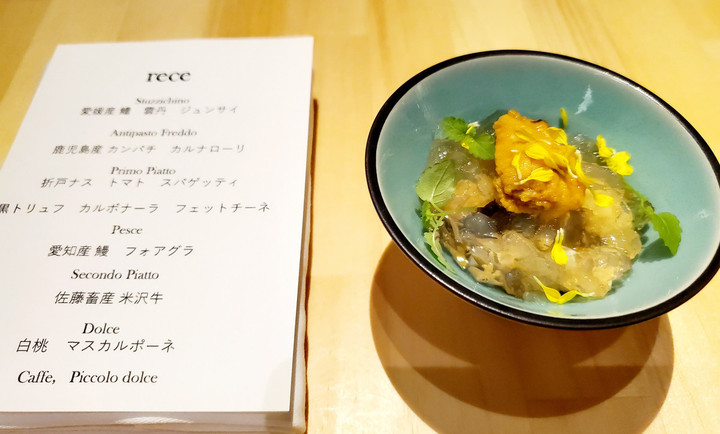 rece
Stuzzichino
愛媛産 鱧 雲丹 ジュンサイ
Antipasto Freddo
鹿児島産 カンパチ カルナローリ
Primo Piatto
折戸ナス トマト スパゲッティ
黒トリュフ カルボナーラ フェットチーネ
Pesce
愛知産 鰻 フォアグラ
Secondo Piatto
佐藤畜産 米沢牛
Dolce
白桃 マスカルポーネ
Caffe, Piccolo dolce